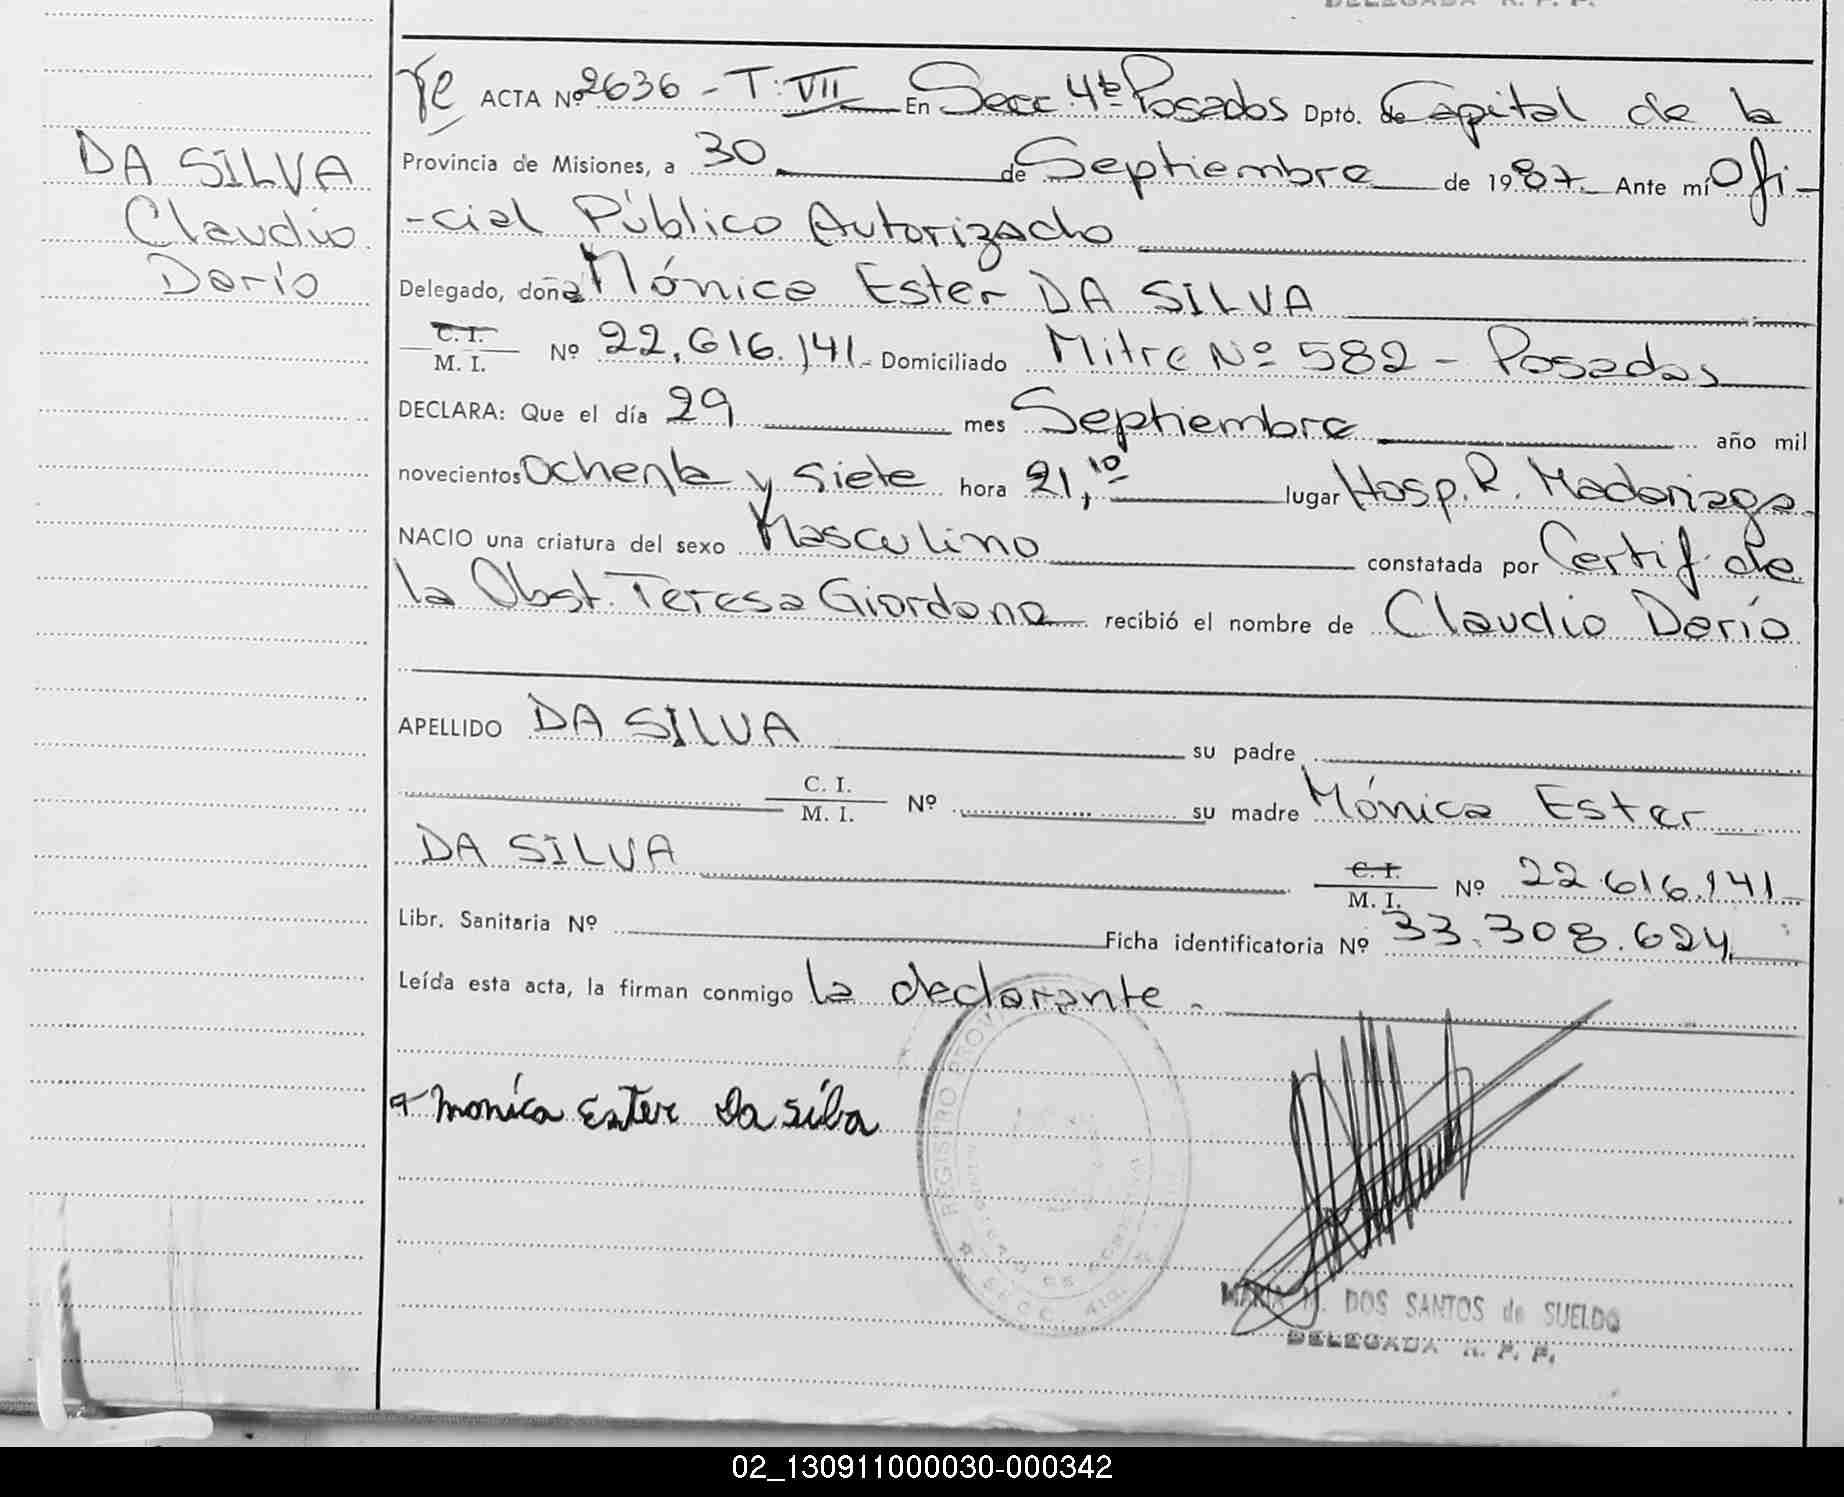 DA SILVA
Claudio
Darío
ACTA Nº 2636 - T: VII En Secc 4ta Posadas Dpto. de Capital de la
Provincia de Misiones, a 30 de Septiembre de 1987. Ante mí Ofi-
-cial Público Autorizado
Delegado, doña Mónica Ester DA SILVA
C. I.
M. I. Nº 22.616.141.- Domiciliado Mitre Nº 582 - Posadas
DECLARA: Que el día 29 mes Septiembre año mil
novecientos Ochenta y siete hora 21,10 lugar Hosp. R. Madariaga.
NACIO una criatura del sexo Masculino constatada por Certif. de
la Obst. Teresa Giordano recibió el nombre de Claudio Darío
APELLIDO DA SILVA su padre
C. I.
M. I. Nº su madre Mónica Ester
DA SILVA C. I.
M. I. Nº 22.616.141-
Libr. Sanitaria Nº Ficha identificatoria Nº 33.308.624
Leída esta acta, la firman conmigo la declarante.
Monica Ester Da Silba
REGISTRO PROV
SECC. 4ta.
MARIA DOS SANTOS de SUELDO
DELEGADA R. P. P.
02_130911000030-000342